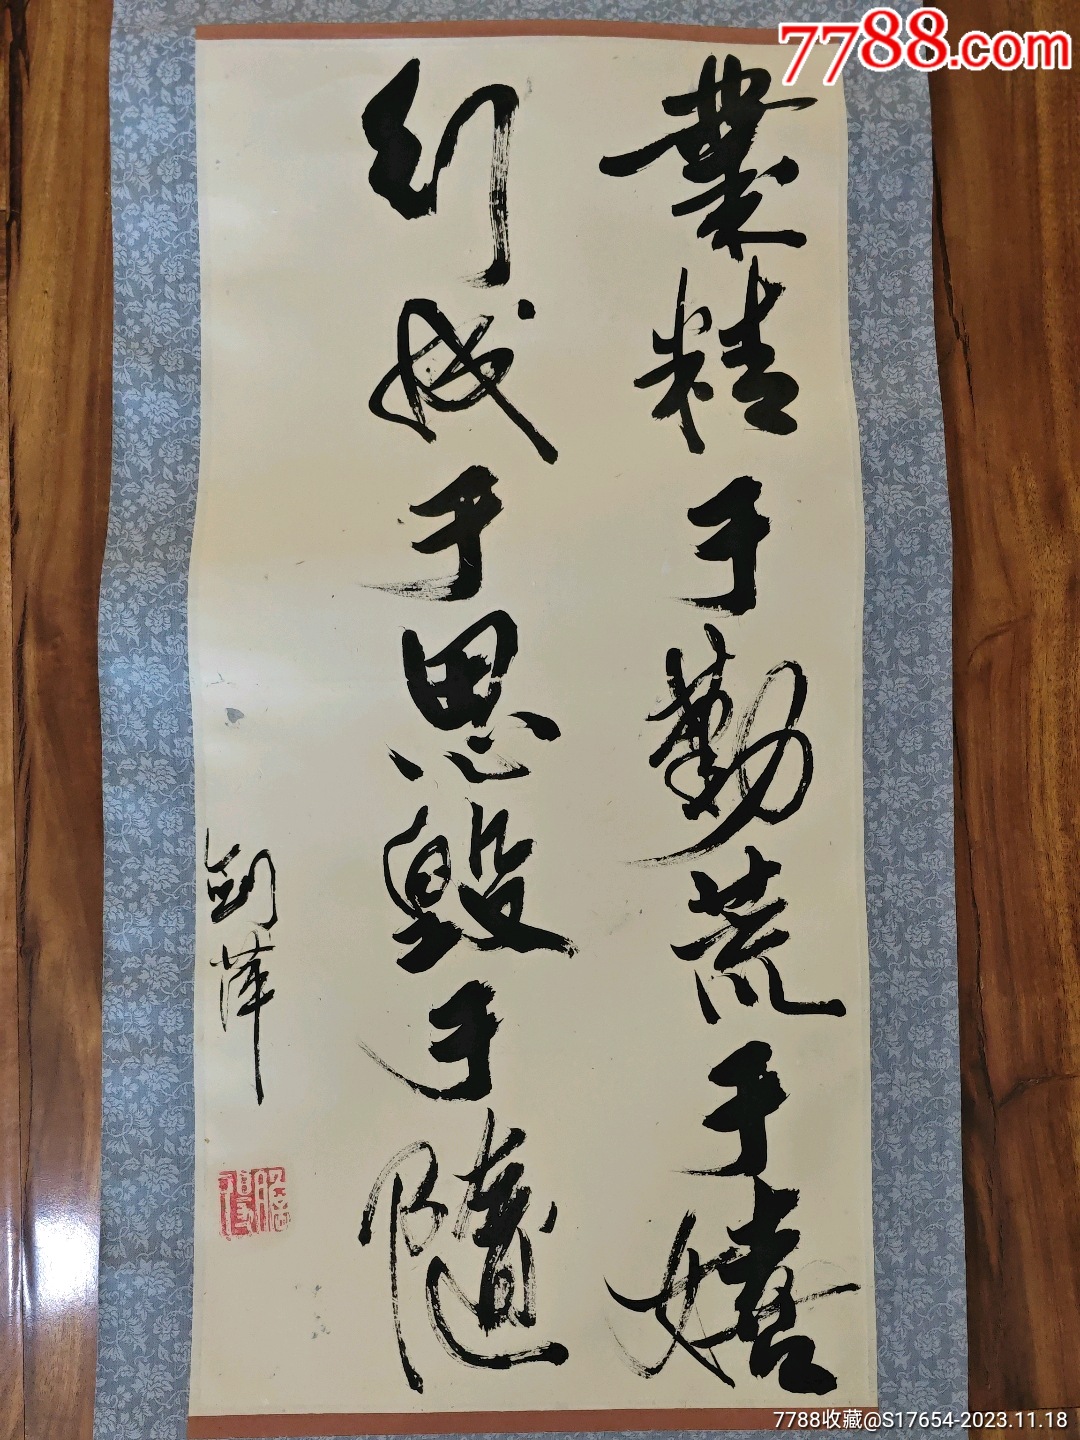 7788.com
業精于勤荒于嬉
行成于思毀于隨
劍萍
7788收藏@S17654-2023.11.18